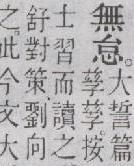 無怠。大誓篇
孳孳。按
士習而讀之
舒對策劉向
之。此今文大